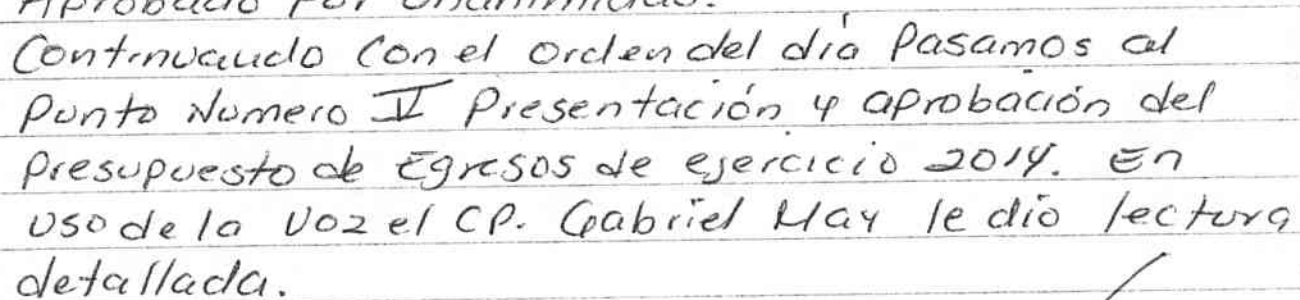 Aprobado Por Unanimidad.
Continuando Con el orden del día Pasamos al
Punto Numero V Presentación y aprobación del
Presupuesto de Egresos de ejercicio 2014. En
uso de la voz el CP. Gabriel May le dio lectura
detallada.